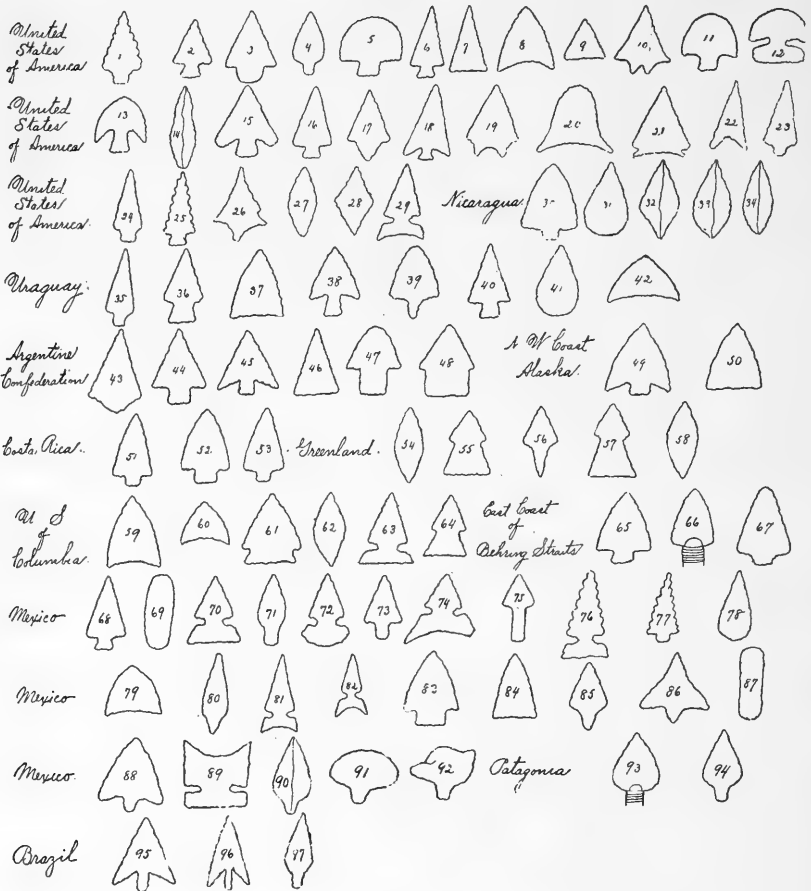 United States of America 1 2 3 4 5 6 7 8 9 10 11 12
United States of America 13 14 15 16 17 18 19 20 21 22 23
United States of America. 24 25 26 27 28 29 Nicaragua. 30 31 32 33 34
Uraguay. 35 36 37 38 39 40 41 42
Argentine Confederation 43 44 45 46 47 48 N W Coast Alaska. 49 50
Costa, Rica. 51 52 53 Greenland. 54 55 56 57 58
U S of Columbia. 59 60 61 62 63 64 East Coast of Behring Straits 65 66 67
Mexico 68 69 70 71 72 73 74 75 76 77 78
Mexico 79 80 81 82 83 84 85 86 87
Mexico. 88 89 90 91 92 Patagonia " 93 94
Brazil 95 96 97